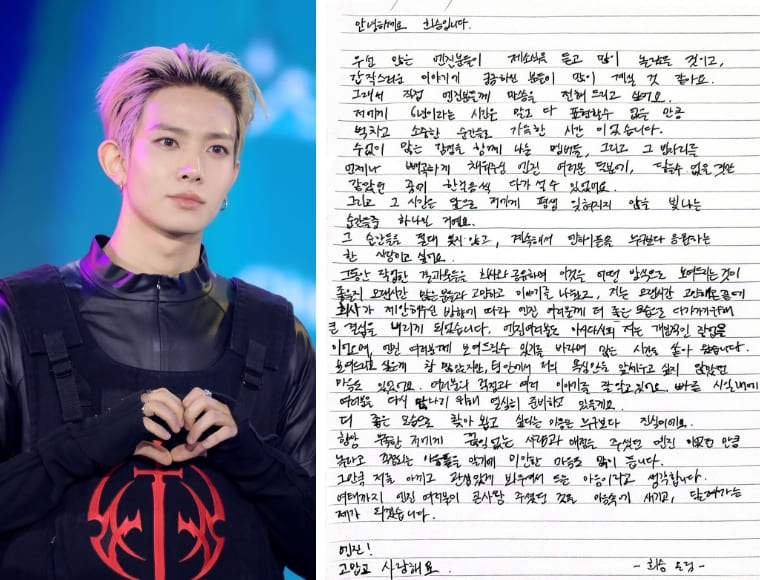 안녕하세요 희승입니다.
우선 많은 엔진분들이 제소식을 듣고 많이 놀랐을 것이고,
갑작스러운 이야기에 궁금하신 분들이 많이 계실 것 같아요.
그래서 직접 엔진분들께 말씀을 전해 드리고 싶어요.
저에게 6년이라는 시간은 말로 다 표현할수 없을 만큼
벅차고 소중한 순간들로 가득한 시간 이었습니다.
수없이 많은 감정을 함께 나눈 멤버들, 그리고 그 빈자리를
언제나 빼곡하게 채워주신 엔진 여러분 덕분에, 닿을수 없을 것만
같았던 곳에 한걸음씩 다가 설 수 있었어요.
그리고 그 시간은 앞으로 저에게 평생 잊혀지지 않을 빛나는
순간들중 하나일 거에요.
그 순간들을 절대 잊지 않고, 계속해서 엔하이픈을 누구보다 응원하는
한 사람이고 싶어요.
그동안 작업한 결과물들을 회사와 공유하며 이것을 어떤 방식으로 보여드리는것이
좋을지 오랜시간 많은 분들과 고민하고 이야기를 나눴고, 저는 오랜시간 고민해본끝에
회사가 제안해주신 방향에 따라 엔진 여러분께 더 좋은 모습으로 다가가기위해
큰 결심을 내리게 되었습니다. 엔진여러분도 아시다시피 저는 개인적인 작업을
이어오며, 엔진 여러분께 보여드릴수 있기를 바라며 많은 시간을 쏟아 왔습니다.
보여드리고 싶은게 참 많았지만, 팀 안에서 저의 욕심만을 앞세우고 싶지 않았던
마음도 있었어요. 여러분의 걱정과 여러 이야기를 잘 알고있어요. 빠른 시일내에
여러분을 다시 만나기 위해 열심히 준비하고 있을게요.
더 좋은 모습으로 찾아 뵙고 싶다는 마음은 누구보다 진심이에요.
항상 부족한 저에게 끊임없는 사랑과 애정을 주셨던 엔진 이었던 만큼
놀라고 걱정되는 마음들을 알기에 미안한 마음도 많이 듭니다.
그만큼 저를 아끼고 관심있게 봐주셔서 드는 마음이라고 생각합니다.
여태까지 엔진 여러분이 관심과 주셨던 것을 마음속에 새기고, 달려가는
제가 되겠습니다.
엔진!
고맙고 사랑해요.
- 희승 올림 -